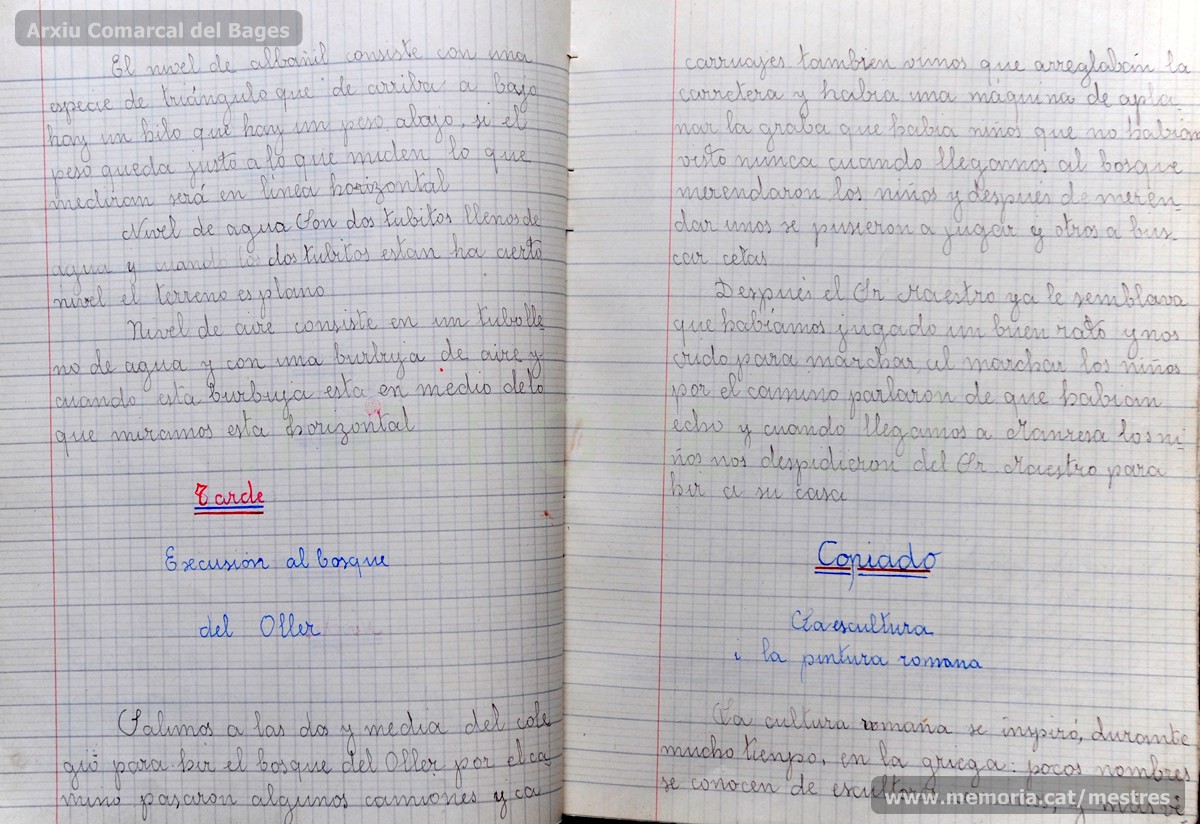 Arxiu Comarcal del Bages
El nivel de albañil consiste con una
especie de triángulo que de arriba a bajo
hay un hilo que hay un peso abajo, si el
peso queda justo a lo que miden lo que
mediran será en línea horizontal
Nivel de agua Son dos tubitos llenos de
agua y cuando los dos tubitos estan ha cierto
nivel el terreno es plano
Nivel de aire consiste en un tubo lle
no de agua y con una burbuja de aire y
cuando esta burbuja esta en medio de lo
que miramos esta horizontal
Tarde
Excusión al bosque
del Oller
Salimos a las dos y media del cole
gio para hir el bosque del Oller por el ca
mino pasaron algunos camiones y ca
carruajes tambien vimos que arreglabán la
carretera y habia una máquina de apla-
nar la graba que habia niños que no habian
visto nunca cuando llegamos al bosque
merendaron los niños y después de meren-
dar unos se pusieron a jugar y otros a bus-
car cetas
Después el Sr Maestro ya le semblava
que habíamos jugado un buen rato y nos
crido para marchar, al marchar los niños
por el camino parlaron de que habian
echo y cuando llegamos a Manresa los ni-
ños nos despidieron del Sr Maestro para
hir a su casa
Copiado
La escultura
i la pintura romana
La cultura romana se inspiró, durante
mucho tiempo, en la griega: pocos nombres
se conocen de escultores y mas vi-
www.memoria.cat/mestres